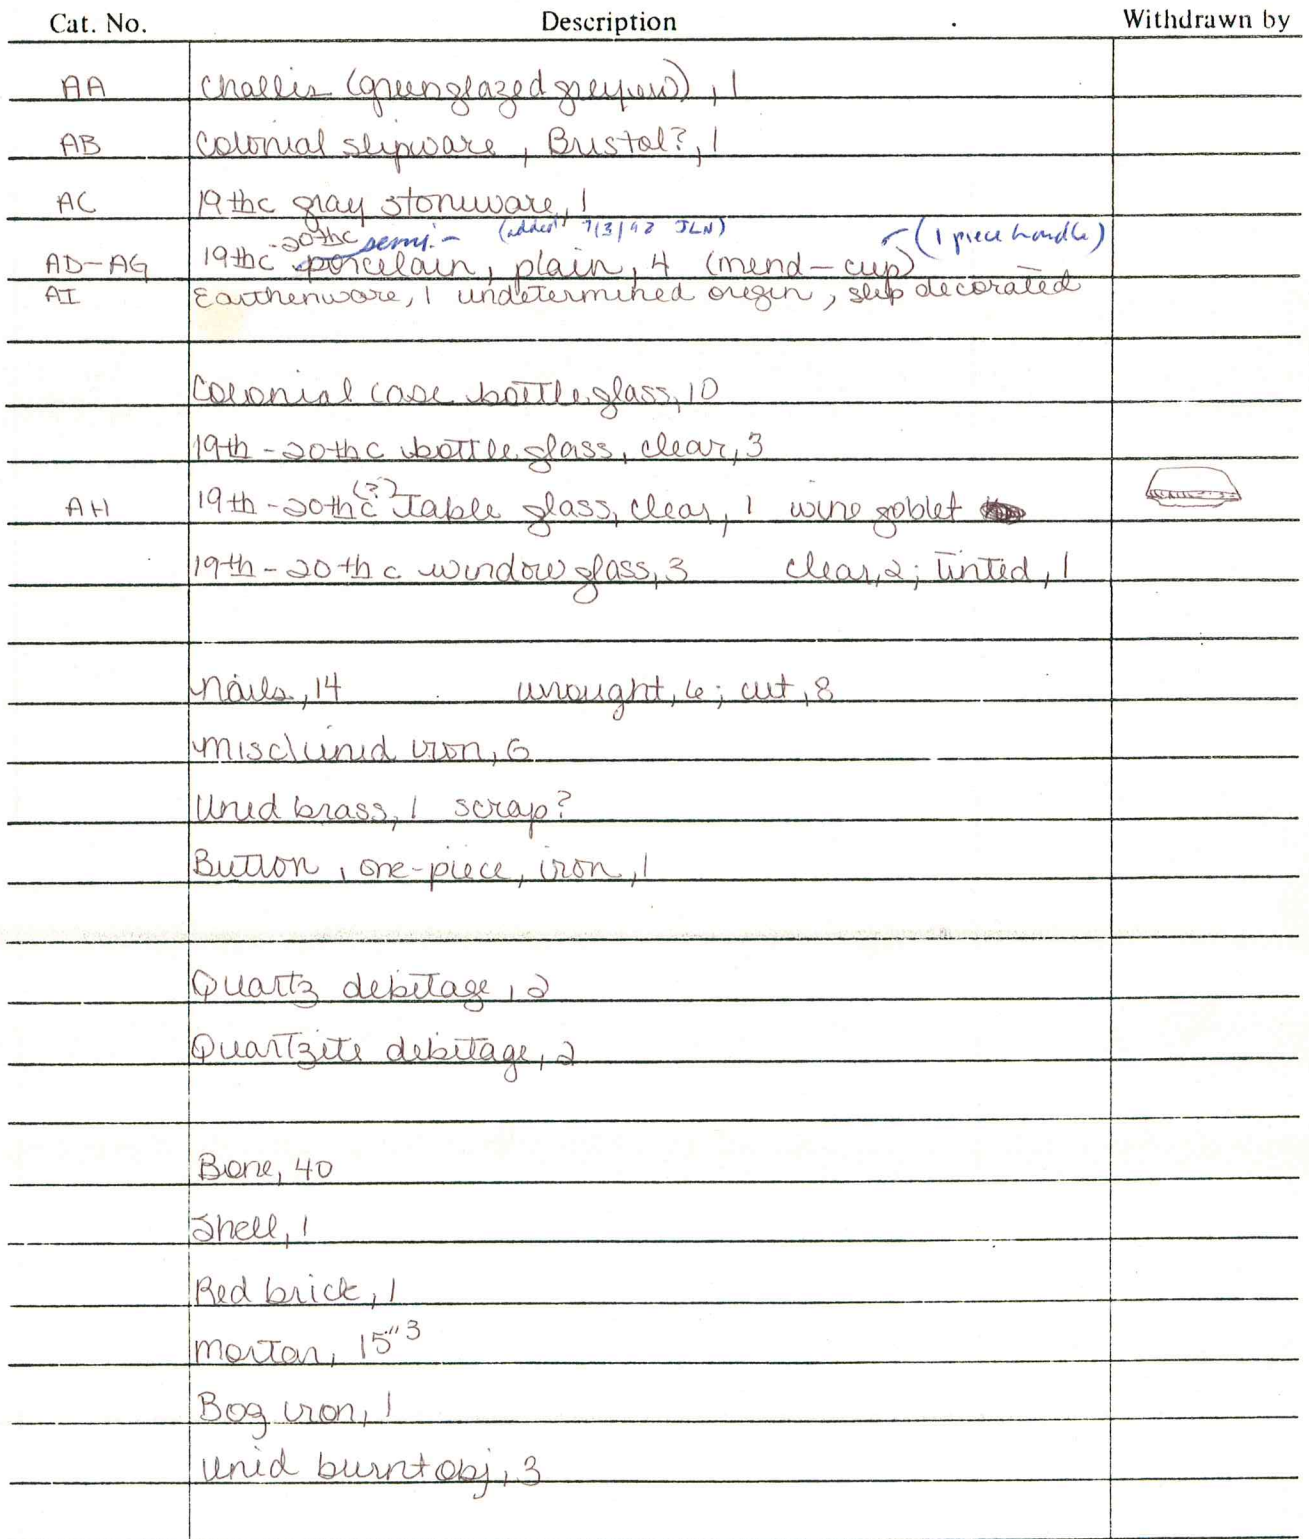 Cat. No. Description Withdrawn by
AA Challis (green glazed greyware), 1
AB Colonial slipware, Bristol?, 1
AC 19thc gray stoneware, 1
-20thc semi- (added 7/3/92 JLN) (1 piece handle)
AD-AG 19thc porcelain, plain, 4 (mend-cup)
AI Earthenware, 1 undetermined origin, slip decorated
Colonial case bottle glass, 10
19th-20thc bottle glass, clear, 3
AH 19th-20thc (?) Table glass, clear, 1 wine goblet
19th-20thc window glass, 3 clear, 2; tinted, 1
Nails, 14 wrought, 6; cut, 8
Misc/unid iron, 6
Unid brass, 1 scrap?
Button, one-piece, iron, 1
Quartz debitage, 2
Quartzite debitage, 2
Bone, 40
Shell, 1
Red brick, 1
Mortar, 15"3
Bog iron, 1
Unid burnt obj, 3